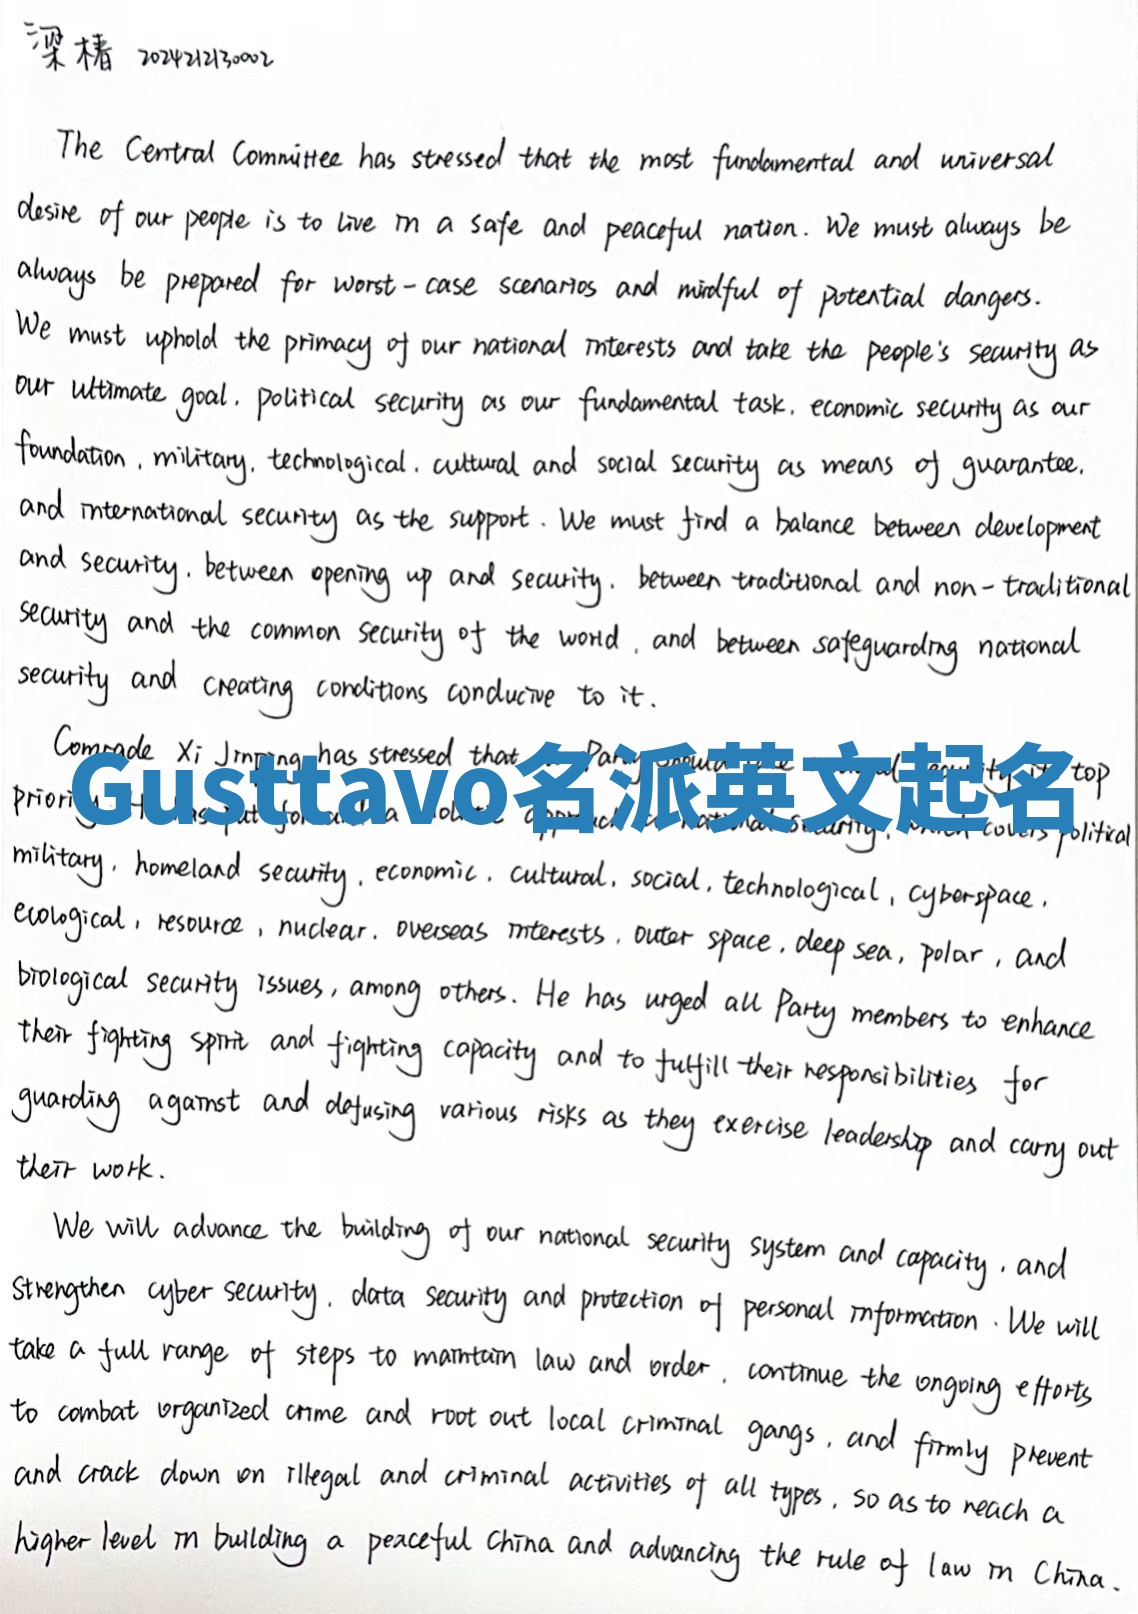 梁椿 2024212130002
The Central Committee has stressed that the most fundamental and universal
desire of our people is to live in a safe and peaceful nation. We must always be
always be prepared for worst-case scenarios and mindful of potential dangers.
We must uphold the primacy of our national interests and take the people's security as
our ultimate goal, political security as our fundamental task, economic security as our
foundation, military, technological, cultural and social security as means of guarantee,
and international security as the support. We must find a balance between development
and security, between opening up and security, between traditional and non-traditional
security and the common security of the world, and between safeguarding national
security and creating conditions conducive to it.
Comrade Xi Jinping has stressed that Party should top
Gusttavo名派英文起名
put a national security, which covers political
military, homeland security, economic, cultural, social, technological, cyberspace,
ecological, resource, nuclear, overseas interests, outer space, deep sea, polar, and
biological security issues, among others. He has urged all Party members to enhance
their fighting spirit and fighting capacity and to fulfill their responsibilities for
guarding against and defusing various risks as they exercise leadership and carry out
their work.
We will advance the building of our national security system and capacity, and
strengthen cyber security, data security and protection of personal information. We will
take a full range of steps to maintain law and order, continue the ongoing efforts
to combat organized crime and root out local criminal gangs, and firmly prevent
and crack down on illegal and criminal activities of all types, so as to reach a
higher level in building a peaceful China and advancing the rule of law in China.